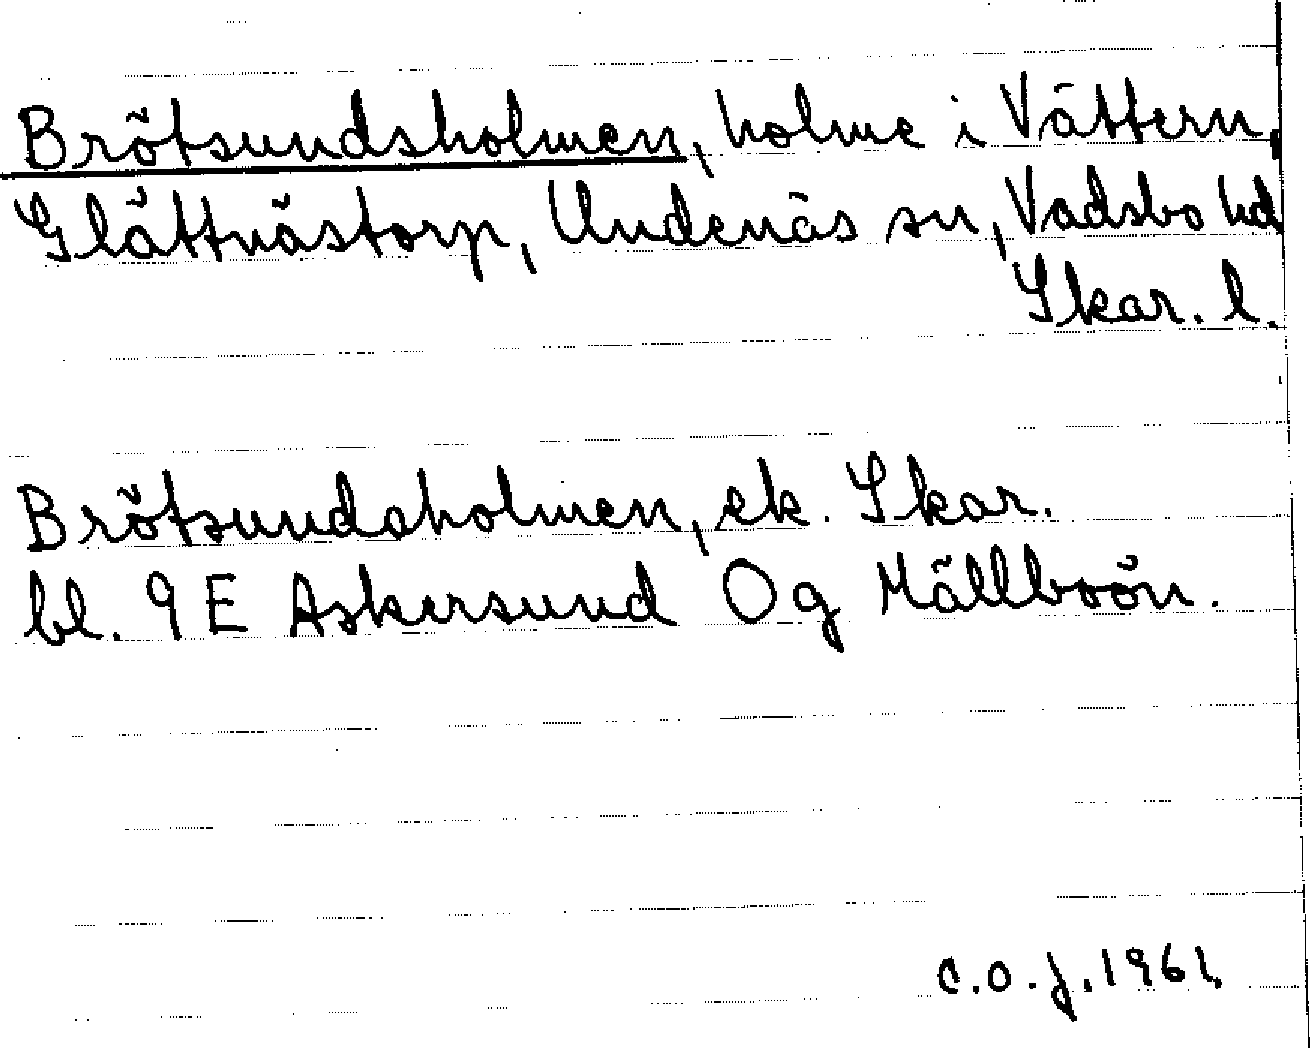 Brötsundsholmen, holme i Vättern,
Glättnästorp, Undenäs sn, Vadsbo hd
Skar. l.
Brötsundsholmen, ek. Skar.
bl. 9 E Askersund Og Mällboön.
C.O.J. 1961.